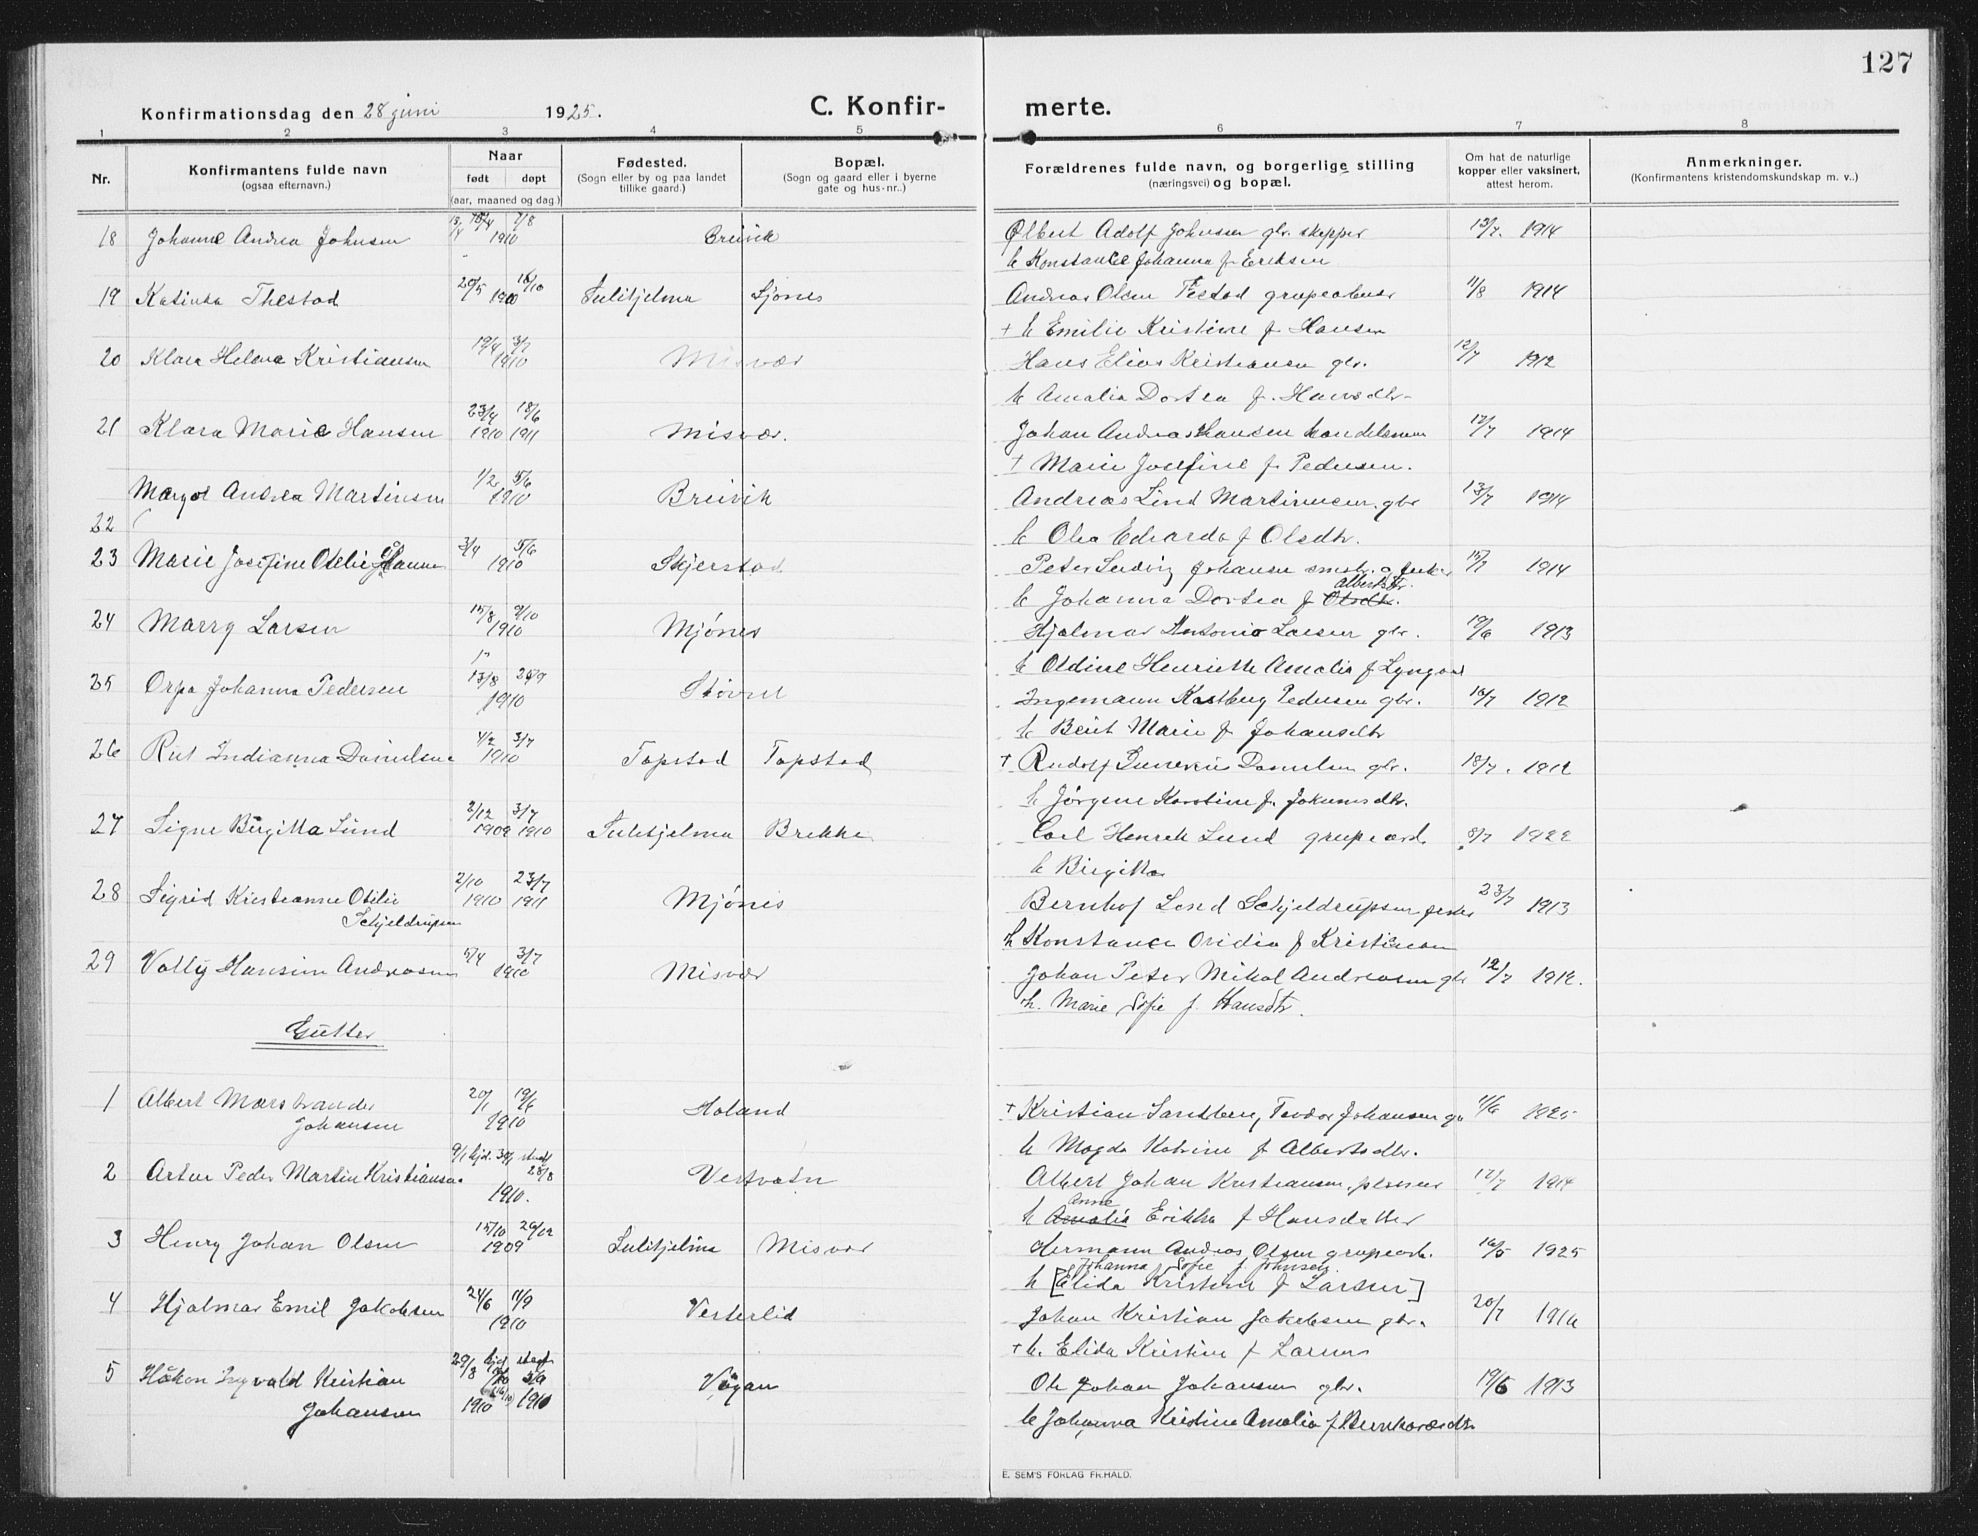 127
Konfirmationsdag den 28 juni 1925. C. Konfir- merte.
1 2 3 4 5 6 7 8
Nr. Konfirmantens fulde navn (ogsaa efternavn.) Naar født døpt (aar, maaned og dag.) Fødested. (Sogn eller by og paa landet tillike gaard.) Bopæl. (Sogn og gaard eller i byerne gate og hus-nr..) Forældrenes fulde navn, og borgerlige stilling (næringsvei) og bopæl. Om hat de naturlige kopper eller vaksinert, attest herom. Anmerkninger. (Konfirmantens kristendomskundskap m. v..)
18 Johanne Andrea Johnsen 7/8 1910 Breivik Olbert Adolf Johnsen gbr. skepper 13/7. 1914
h Konstance Johanna f Eriksen
19 Katinka Thestad 20/5 16/10 1910 Sulitjelma Sjønes Andreas Olsen Testad 11/8 1914
+ h Emilie Kristine f Hansen
20 Klara Helena Kristiansen 19/4 3/7 1910 Misvær Hans Elias Kristiansen gbr. 12/7 1912
h Amalia Dortea f. Hansdtr
21 Klara Marie Hansen 23/4 1910 18/6 1911 Misvær. Johan Andreas Hansen handelsmann 12/7 1914
+ Marie Josefine f Pedersen.
22 Margot Andrea Martinsen 1/2 5/6 1910 Breivik Andreas Lind Martinussen gbr 13/7 1914
h Olea Edvarda f Olsdtr.
23 Marie Josefine Otelie 3/4 5/6 1910 Skjerstad Peter Ludvig Johansen 15/7 1914
h Johanna Dortea f Olsdtr. Albertsdtr.
24 Marry Larsen 15/8 9/10 1910 Mjønes Hjalmar Antonio Larsen gbr. 19/6 1913
h Oldine Henriette Amalia f Lyngaas
25 Orpa Johanna Pedersen 13/8 25/9 1910 Støvset Ingemann Kastberg Pedersen gbr. 16/7 1912
h Berit Marie f Johansdtr
26 Rut Indianna Danielsen 4/2 3/7 1910 Tapstad Tapstad + Rudolf Danielsen gbr. 18/7. 1912
h Jørgine Karstine f. Johannesdtr.
27 Signe Birgitta Lund 2/12 1909 3/7 1910 Sulitjelma Brekke Carl Henrik Lund 8/7 1922
h Birgitta
28 Sigrid Kristianne Otilie Schjeldrupsen 2/10 1910 23/7 1911 Mjønes Bernhof Lend Schjeldrupsen fisker 23/7 1913
h Konstance Ovidia f Kristiansen
29 Vally Hansine Andreasen 5/4 3/7 1910 Misvær Johan Peter Mikal Andreasen gbr 12/7 1912.
h. Marie Sofie f. Hansdtr.
Gutter
1 Albert Marstrander Johansen 20/1 19/6 1910 Holand + Kristian Sandberg Teodor Johansen gbr 11/6 1925
h Magda Katrine f Albertsdtr.
2 Artur Peder Martin Kristiansen 9/1 hjd. 30/1 stadf 28/8 1910. Vestvatn Albert Johan Kristiansen 12/7 1914
h Amalia Anne Erikka f Hansdatter
3 Henry Johan Olsen 15/10 26/12 1909 Sulitjelma Misvær Hermann Andreas Olsen grupearb. 16/5 1925
h Johanna Sofie f. Johnsen
[Elida Kristine f Larsen]
4 Hjalmar Emil Jakobsen 24/6 11/9 1910 Vesterlid Johan Kristian Jakobsen gbr. 20/7 1916
+ h. Elida Kristine f Larsen
5 Håkon Ingvald Kristian Johansen 29/8 hjd 1910 stadf 3/9 1910 Vågan Ole Johan Johansen gbr. 19/6 1913
h Johanna Kristine Amalia f Bernhardsdtr
E. SEM'S FORLAG FR.HALD.